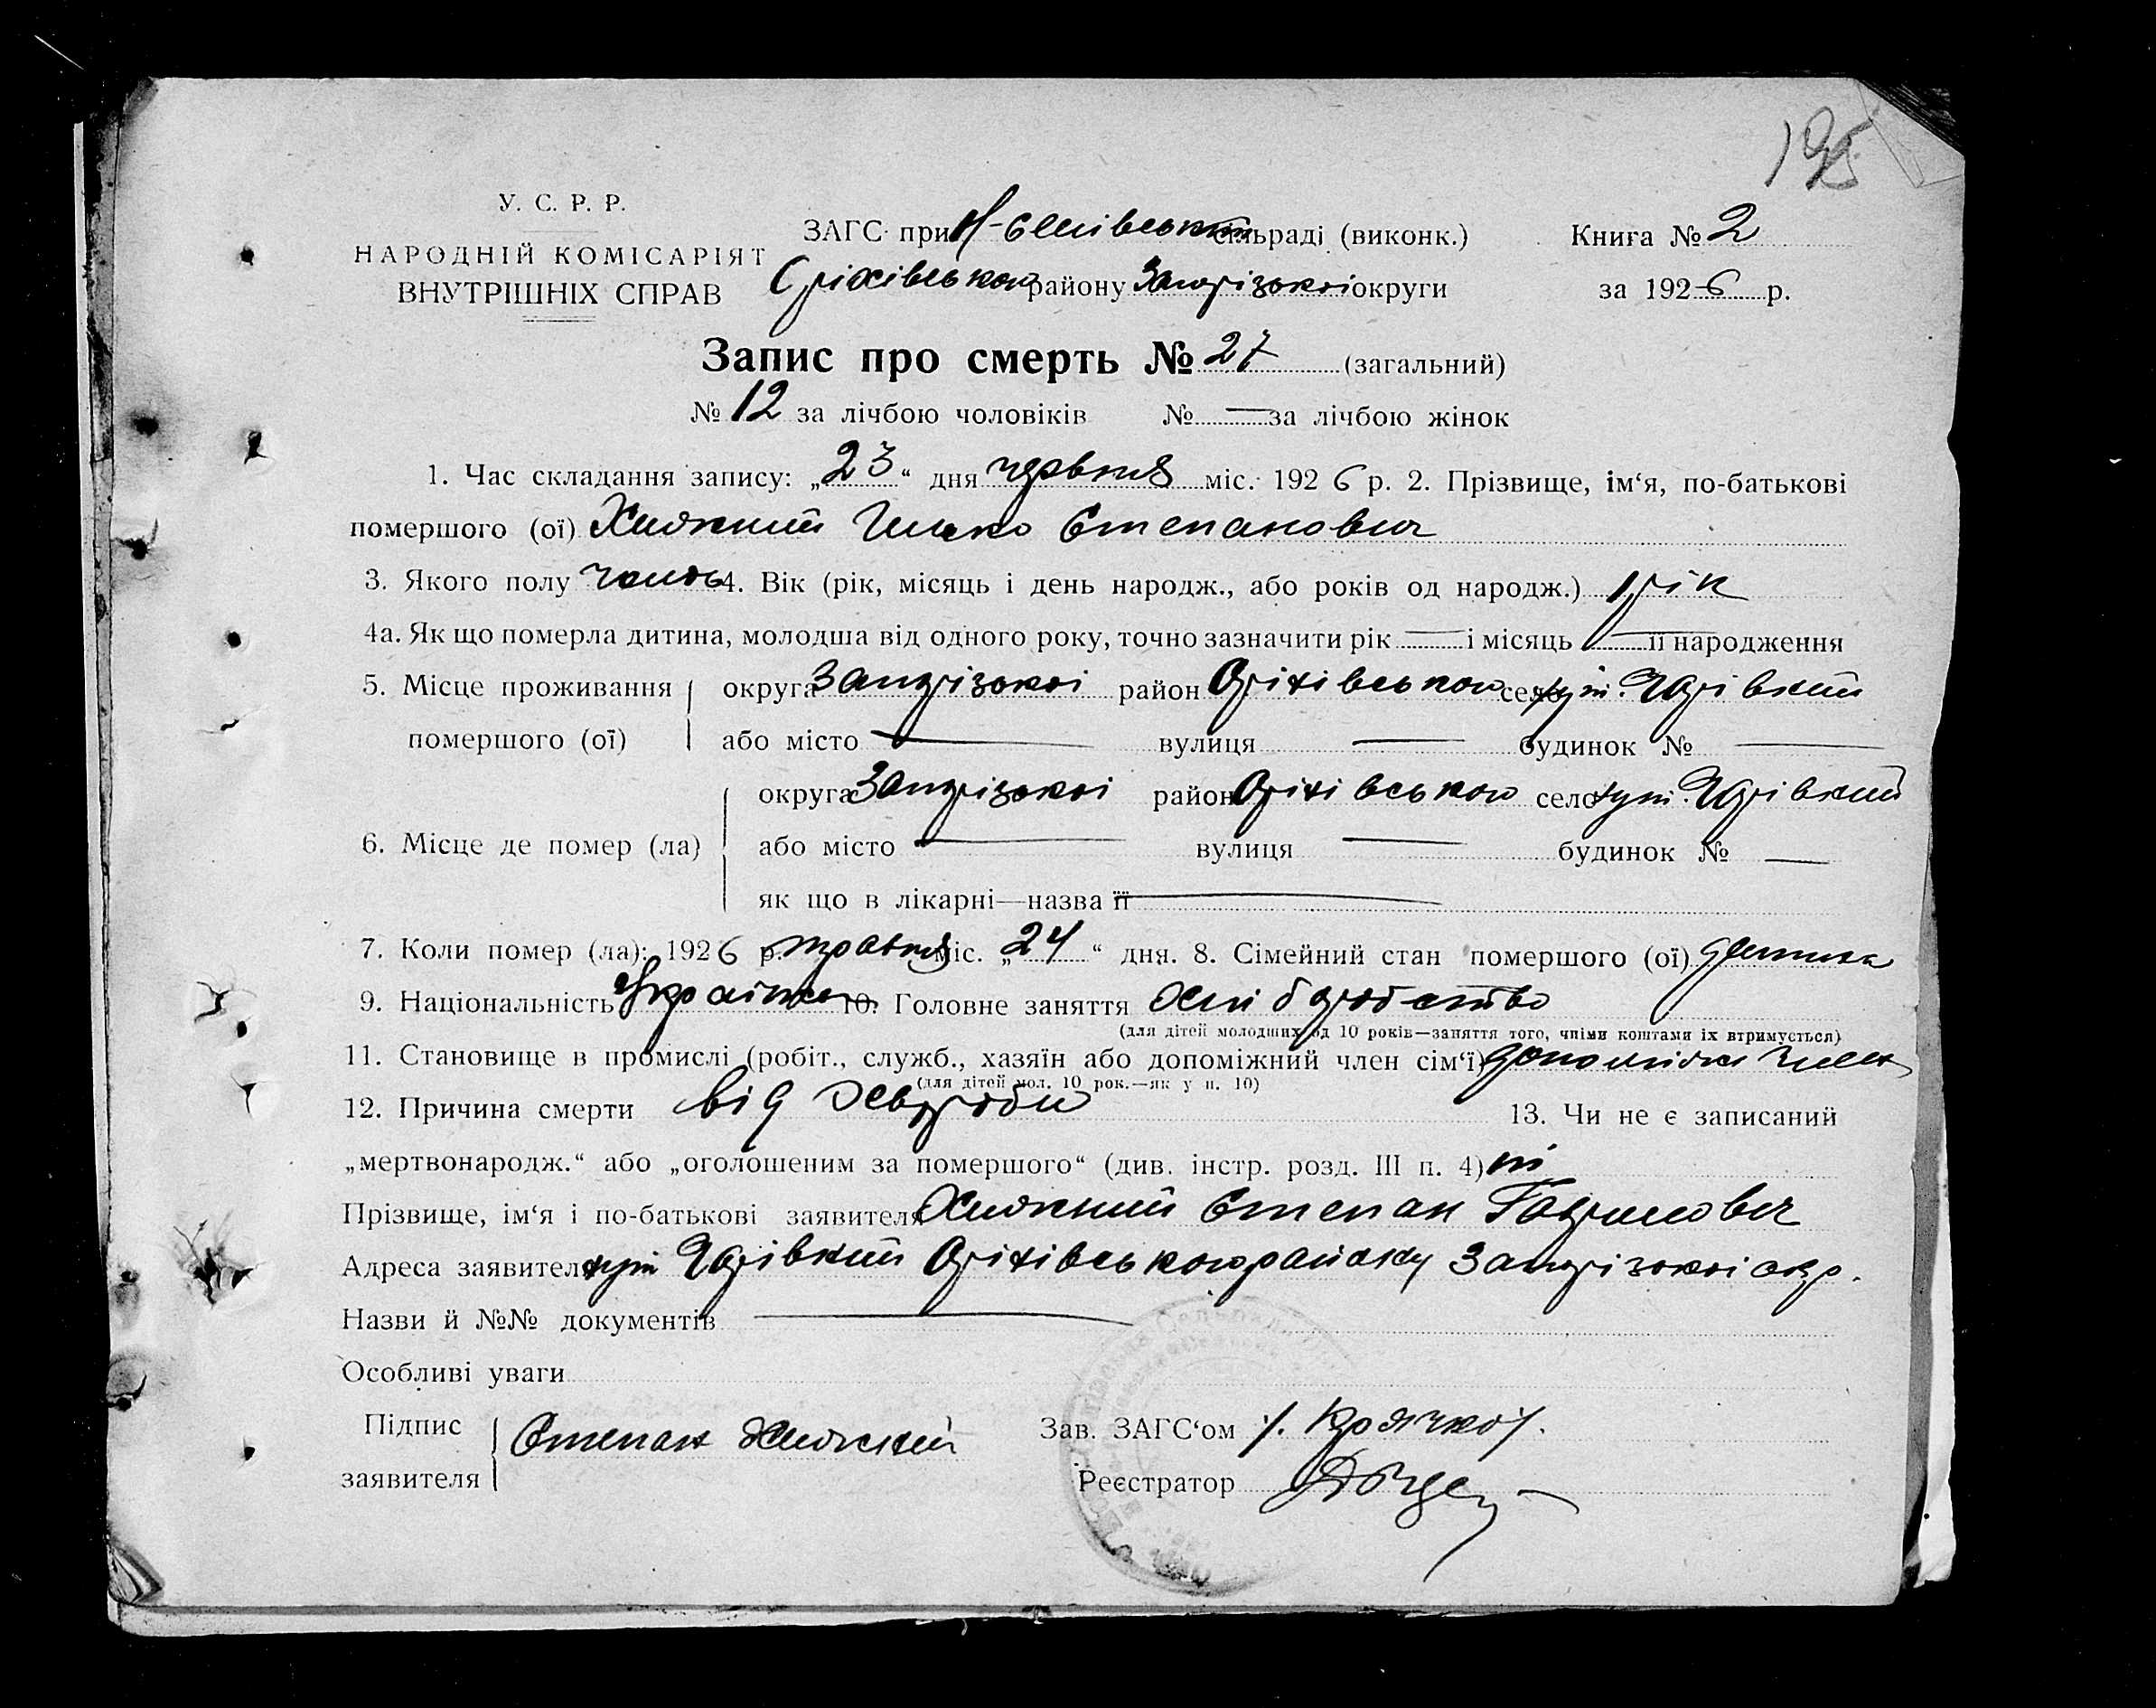 195
У. С. Р. Р.
НАРОДНІЙ КОМІСАРІЯТ
ВНУТРІШНІХ СПРАВ
ЗАГС при сільраді (виконк.)
Оріхівського району Запорізької округи
Книга № 2
за 1926 р.
Запис про смерть № 27 (загальний)
№ 12 за лічбою чоловіків № — за лічбою жінок
1. Час складання запису: „23“ дня червня міс. 1926 р. 2. Прізвище, ім‘я, по-батькові
помершого (ої) Хижний Степанович
3. Якого полу 4. Вік (рік, місяць і день народж., або років од народж.) 1 рік
4а. Як що померла дитина, молодша від одного року, точно зазначити рік — і місяць — її народження
5. Місце проживання помершого (ої) округа Запорізької район Оріхівського село
або місто — вулиця — будинок № —
6. Місце де помер (ла) округа Запорізької район Оріхівського село
або місто — вулиця — будинок № —
як що в лікарні—назва її —
7. Коли помер (ла): 1926 р. травня міс. „24“ дня. 8. Сімейний стан помершого (ої) дитина
9. Національність 10. Головне заняття хліборобство
(для дітей молодших од 10 років—заняття того, чиїми коштами їх втримується)
11. Становище в промислі (робіт., служб., хазяїн або допоміжний член сім‘ї)
(для дітей мол. 10 рок.—як у п. 10)
12. Причина смерти від хвороби 13. Чи не є записаний
„мертвонародж.“ або „оголошеним за помершого“ (див. інстр. розд. III п. 4) ні
Прізвище, ім‘я і по-батькові заявителя Хижний Степан Гаврилович
Адреса заявителя Оріхівського району Запорізької окр.
Назви й №№ документів —
Особливі уваги
Підпис заявителя Степан Хижний
Зав. ЗАГС‘ом
Реєстратор